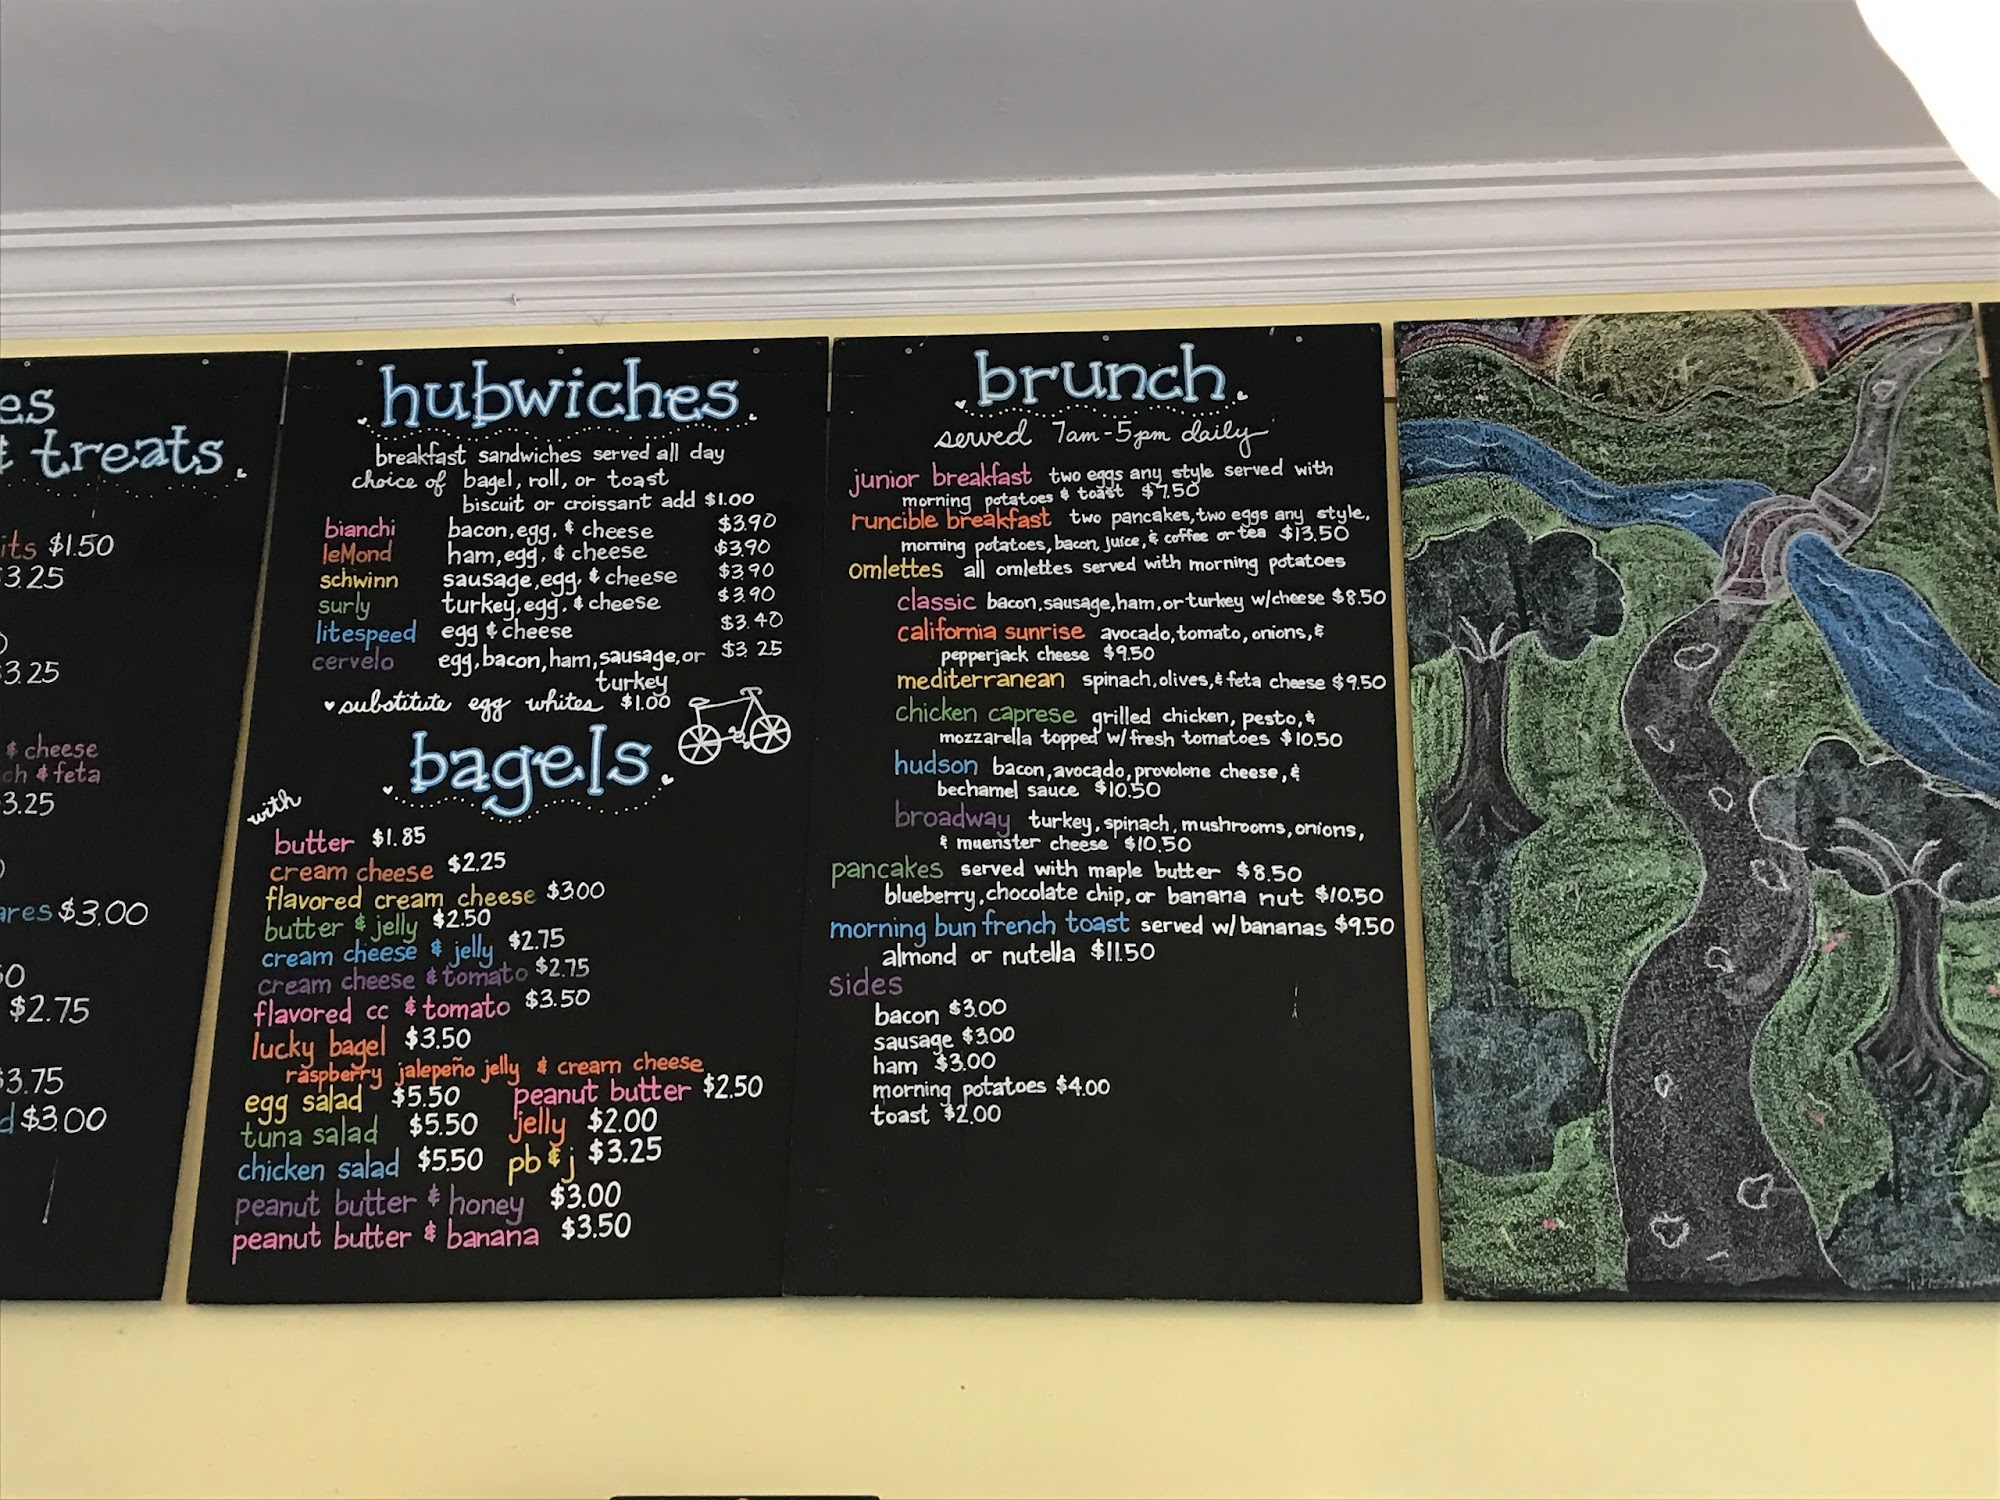 es
& treats
its $1.50
3.25
3.25
& cheese
ch & feta
3.25
ares $3.00
$2.75
$3.75
d $3.00
hubwiches
breakfast sandwiches served all day
choice of bagel, roll, or toast
biscuit or croissant add $1.00
bianchi bacon, egg, & cheese $3.90
leMond ham, egg, & cheese $3.90
schwinn sausage, egg, & cheese $3.90
surly turkey, egg, & cheese $3.90
litespeed egg & cheese $3.40
cervelo egg, bacon, ham, sausage, or $3.25
turkey
substitute egg whites $1.00
bagels
with
butter $1.85
cream cheese $2.25
flavored cream cheese $3.00
butter & jelly $2.50
cream cheese & jelly $2.75
cream cheese & tomato $2.75
flavored cc & tomato $3.50
lucky bagel $3.50
raspberry jalepeño jelly & cream cheese
egg salad $5.50 peanut butter $2.50
tuna salad $5.50 jelly $2.00
chicken salad $5.50 pb & j $3.25
peanut butter & honey $3.00
peanut butter & banana $3.50
brunch
served 7am-5pm daily
junior breakfast two eggs any style served with
morning potatoes & toast $7.50
runcible breakfast two pancakes, two eggs any style,
morning potatoes, bacon, juice, & coffee or tea $13.50
omlettes all omlettes served with morning potatoes
classic bacon, sausage, ham, or turkey w/cheese $8.50
california sunrise avocado, tomato, onions, &
pepperjack cheese $9.50
mediterranean spinach, olives, & feta cheese $9.50
chicken caprese grilled chicken, pesto, &
mozzarella topped w/fresh tomatoes $10.50
hudson bacon, avocado, provolone cheese, &
bechamel sauce $10.50
broadway turkey, spinach, mushrooms, onions,
& muenster cheese $10.50
pancakes served with maple butter $8.50
blueberry, chocolate chip, or banana nut $10.50
morning bun french toast served w/bananas $9.50
almond or nutella $11.50
sides
bacon $3.00
sausage $3.00
ham $3.00
morning potatoes $4.00
toast $2.00